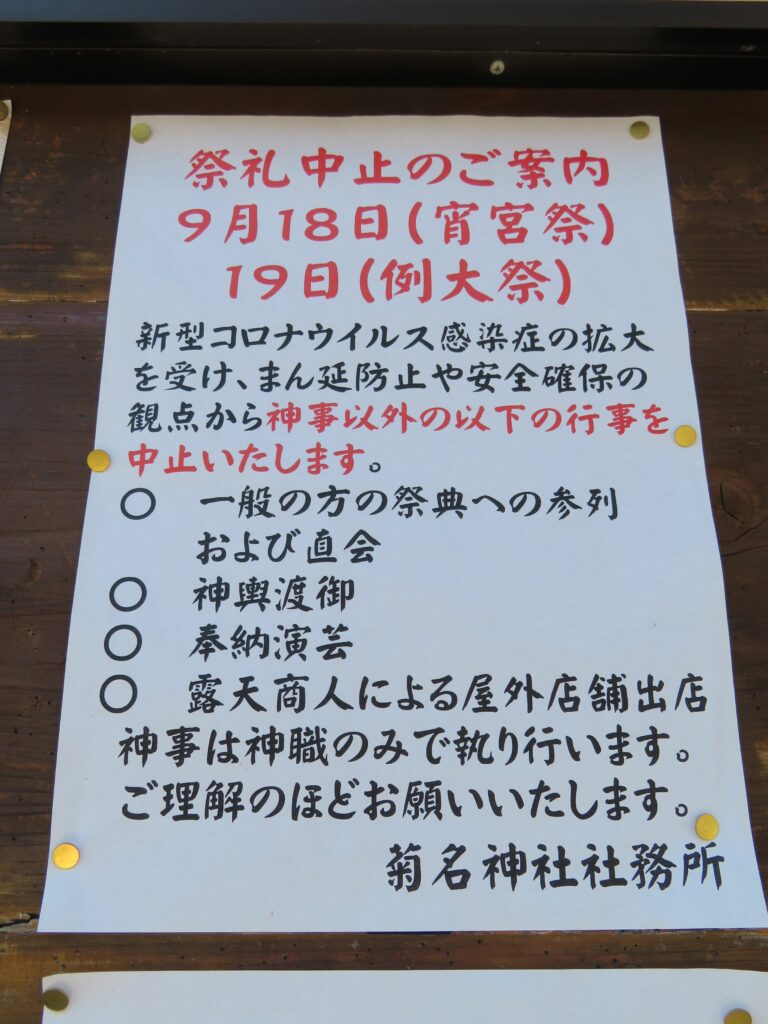 祭礼中止のご案内
9月18日(宵宮祭)
19日(例大祭)
新型コロナウイルス感染症の拡大
を受け、まん延防止や安全確保の
観点から神事以外の以下の行事を
中止いたします。
○ 一般の方の祭典への参列
および直会
○ 神輿渡御
○ 奉納演芸
○ 露天商人による屋外店舗出店
神事は神職のみで執り行います。
ご理解のほどお願いいたします。
菊名神社社務所